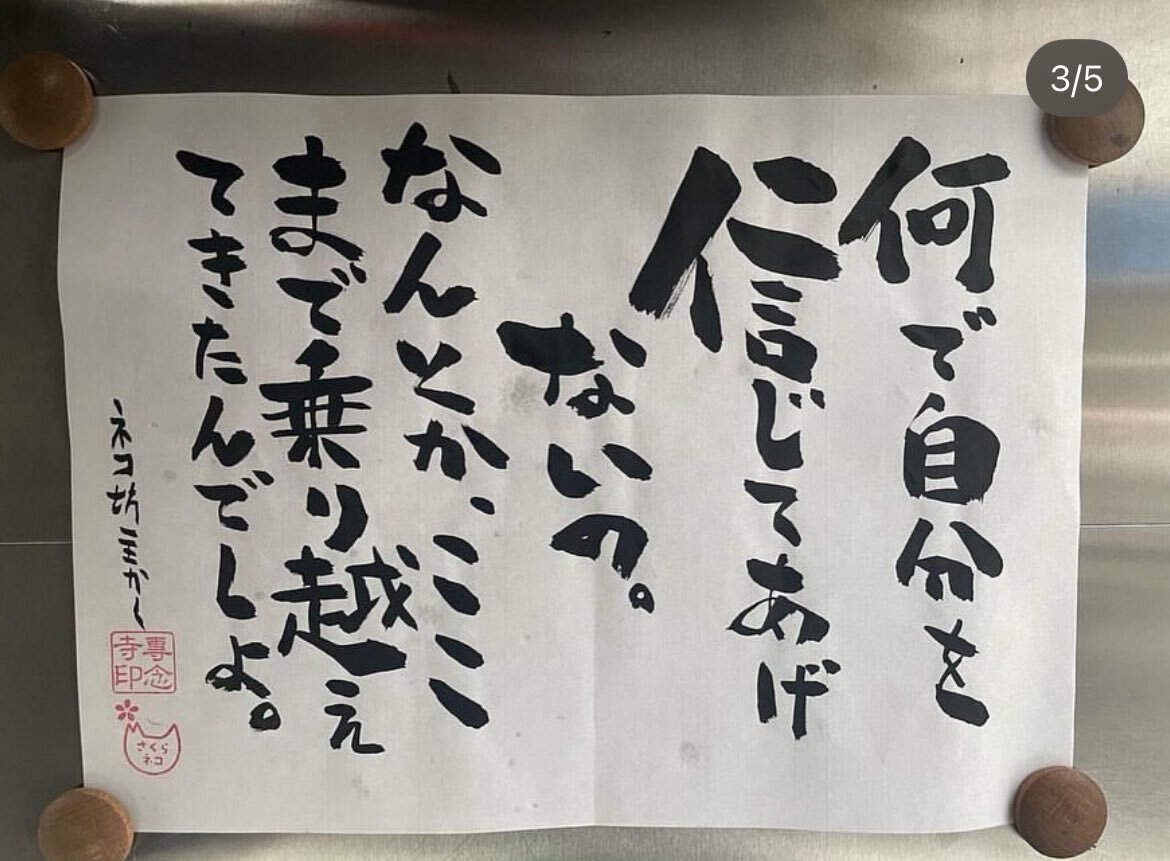 3/5
何で自分を
信じてあげ
ないの。
なんとか、ここ
まで乗り越え
てきたんでしょ。
ネコ坊主かく
専念
寺印
さくら
ネコ